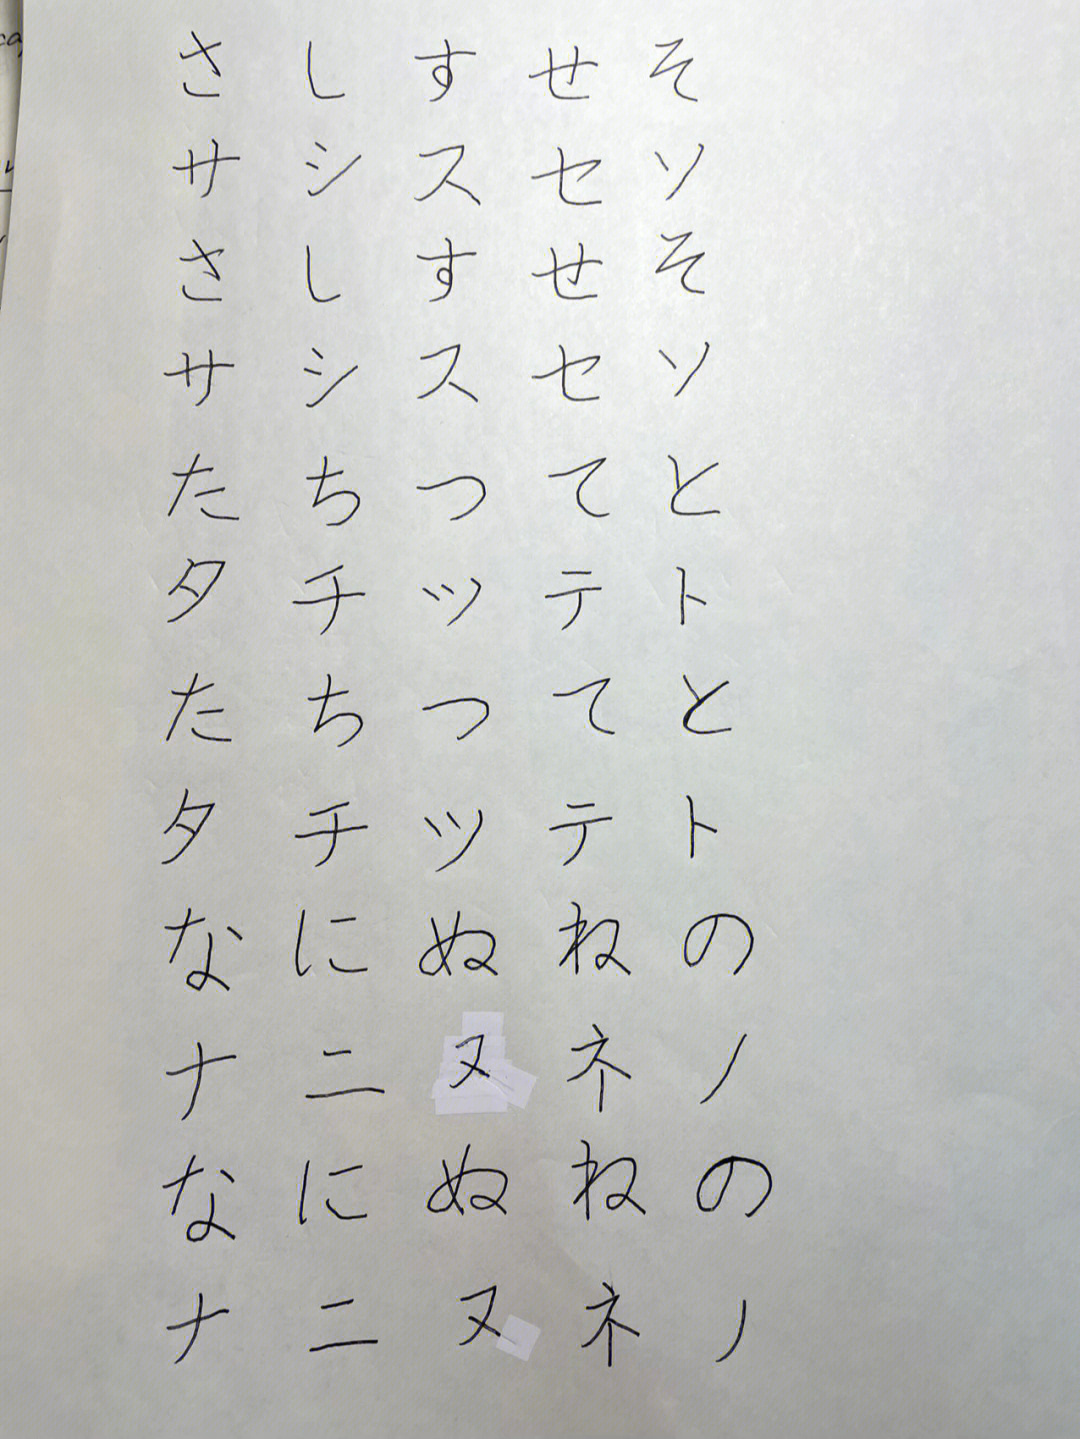 さ し す せ そ
サ シ ス セ ソ
さ し す せ そ
サ シ ス セ ソ
た ち つ て と
タ チ ツ テ ト
た ち つ て と
タ チ ツ テ ト
な に ぬ ね の
ナ ニ ヌ ネ ノ
な に ぬ ね の
ナ ニ ヌ ネ ノ